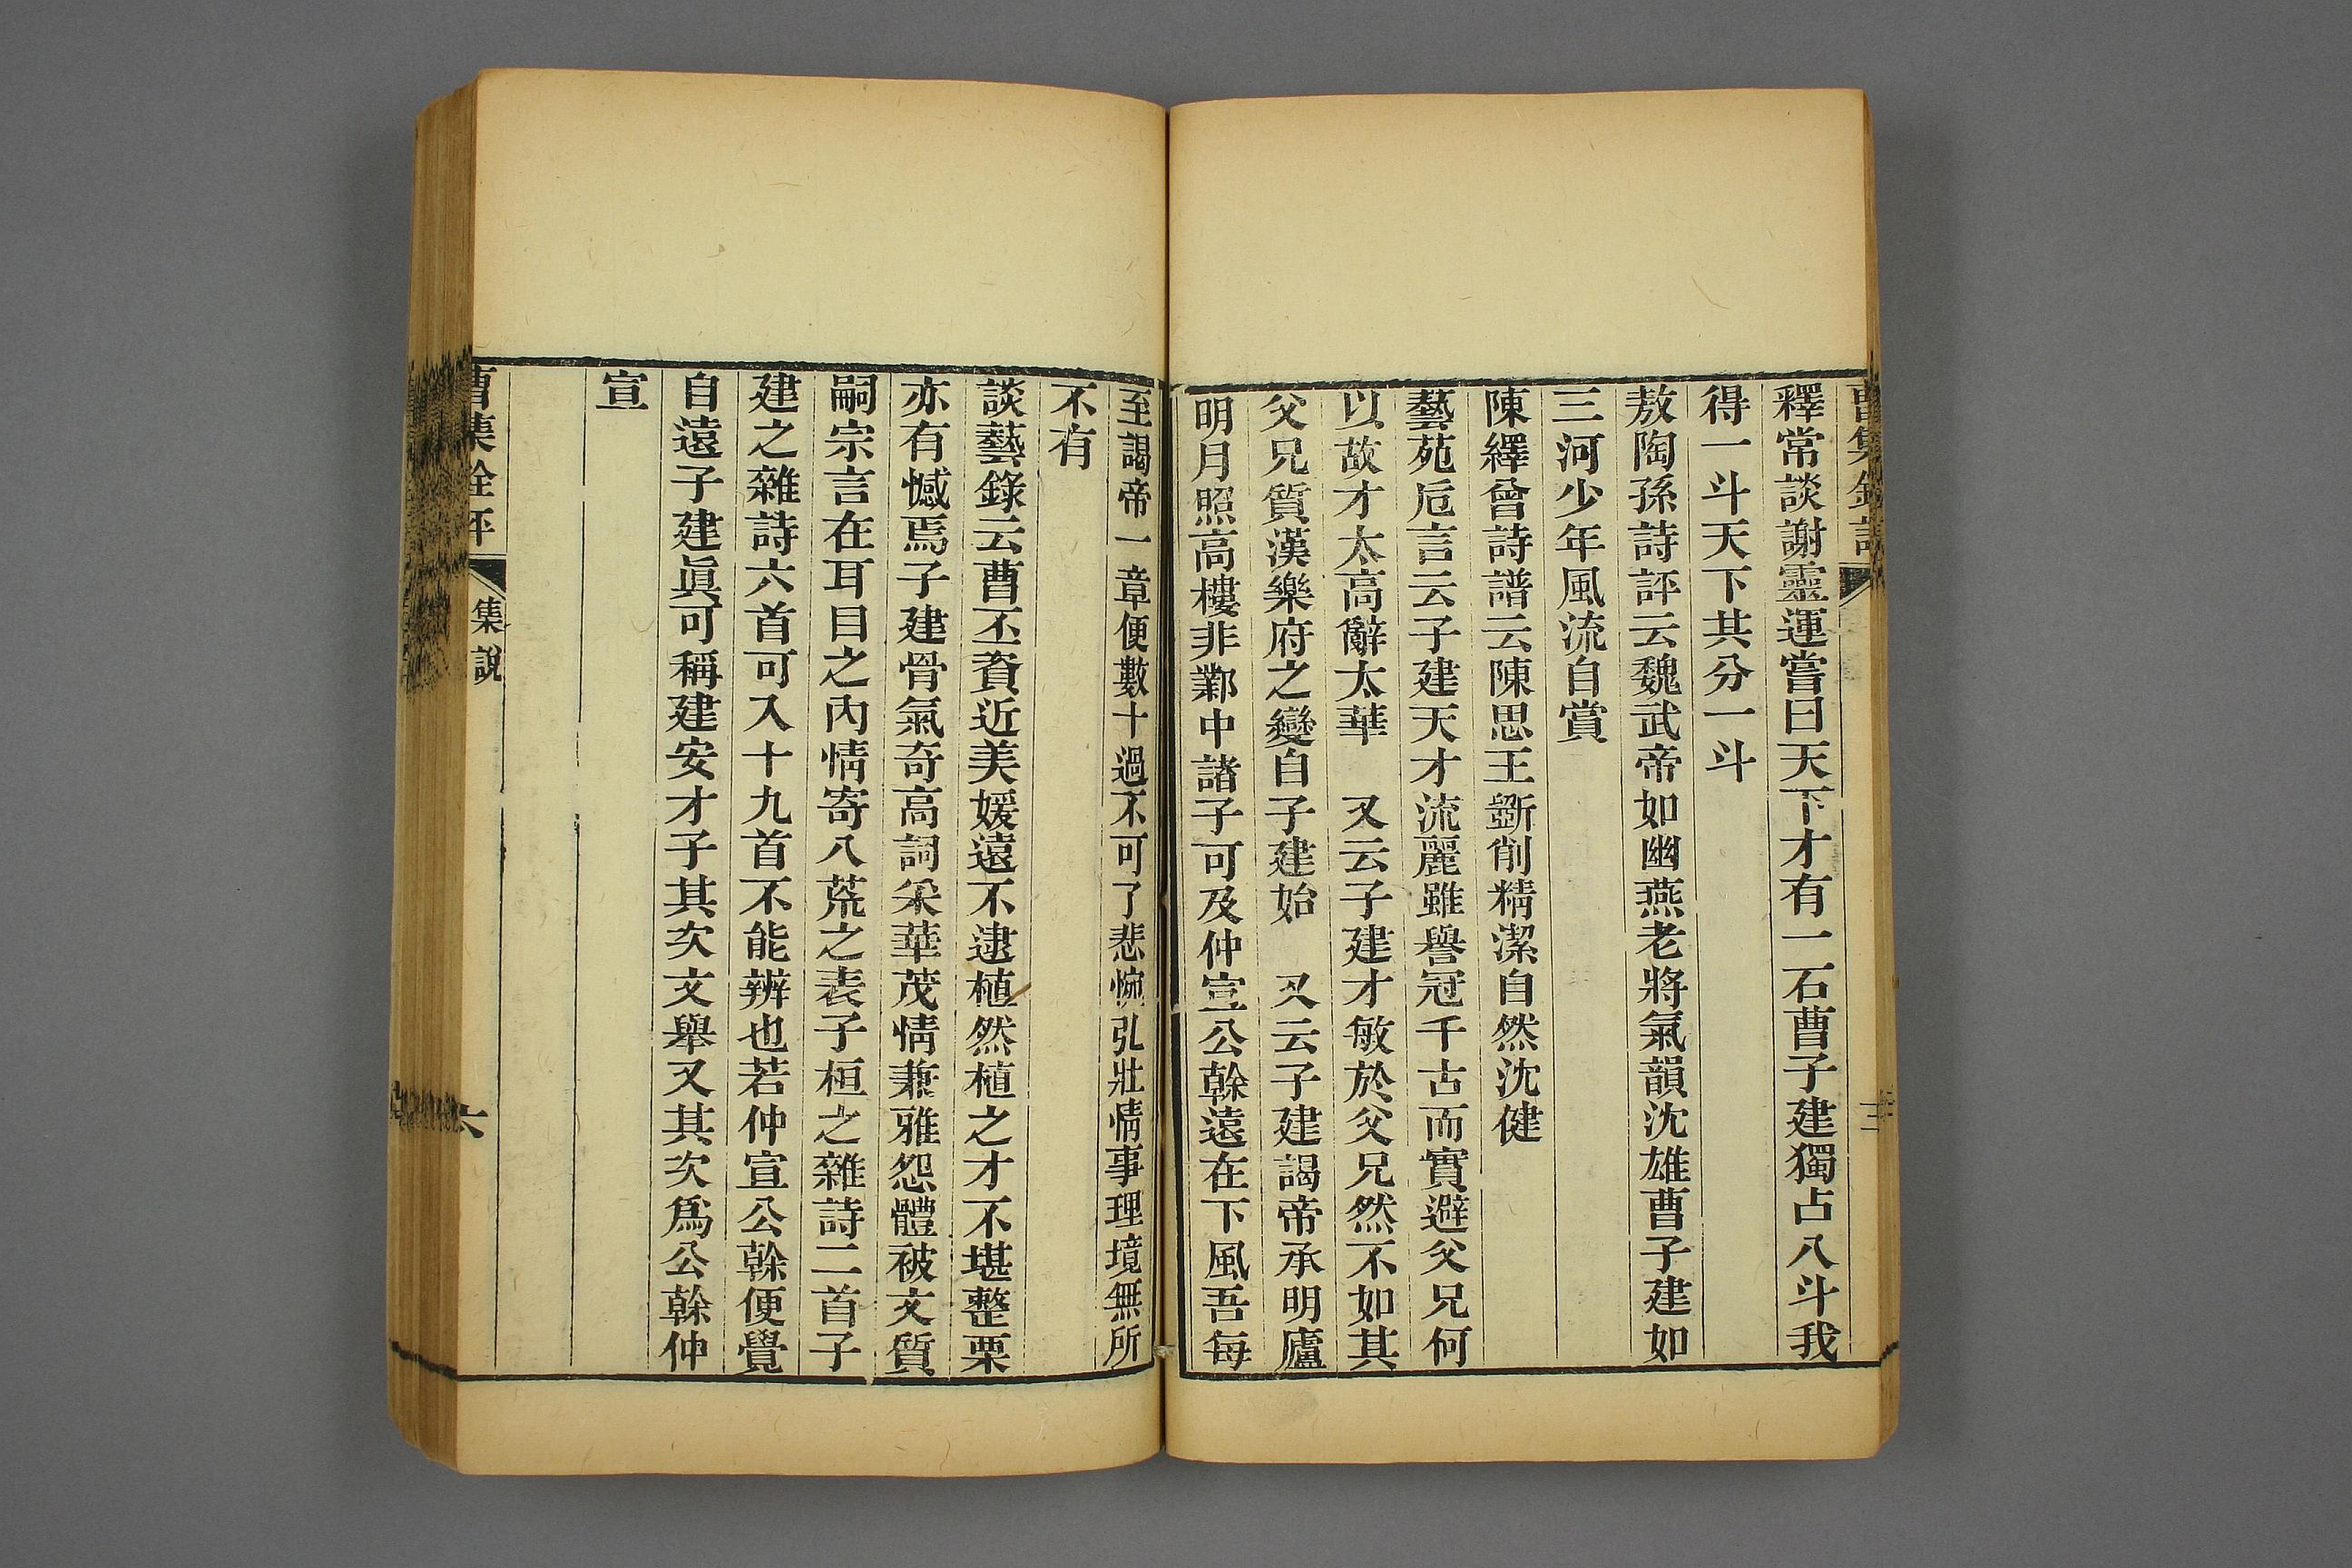 釋常談謝靈運嘗曰天下才有一石曹子建獨占八斗我
得一斗天下共分一斗
敖陶孫詩評云魏武帝如幽燕老將氣韻沈雄曹子建如
三河少年風流自賞
陳繹曾詩譜云陳思王斲削精潔自然沈健
藝苑卮言云子建天才流麗雖譽冠千古而實避父兄何
以故才太高辭太華　又云子建才敏於父兄然不如其
父兄質漢樂府之變自子建始　又云子建謁帝承明廬
明月照高樓非鄴中諸子可及仲宣公幹遠在下風吾每
至謁帝一章便數十過不可了悲惋弘壯情事理境無所
不有
談藝錄云曹丕資近美媛遠不逮植然植之才不堪整栗
亦有憾焉子建骨氣奇高詞采華茂情兼雅怨體被文質
嗣宗言在耳目之內情寄八荒之表子桓之雜詩二首子
建之雜詩六首可入十九首不能辨也若仲宣公幹便覺
自遠子建眞可稱建安才子其次文舉又其次爲公幹仲
宣
曹集銓評
集說
六